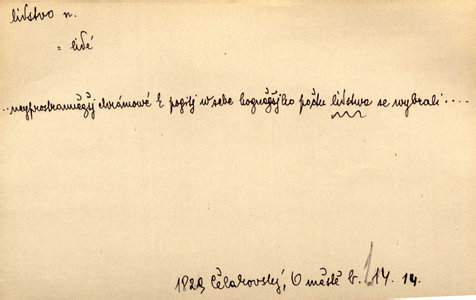 lidstvo n.
= lidé
..neyprostranněgšj chrámové k pogitj w sebe hogněgšjho počtu lidstva se wybrali....
1829 Čelakovský, O městě b. 114. 14.